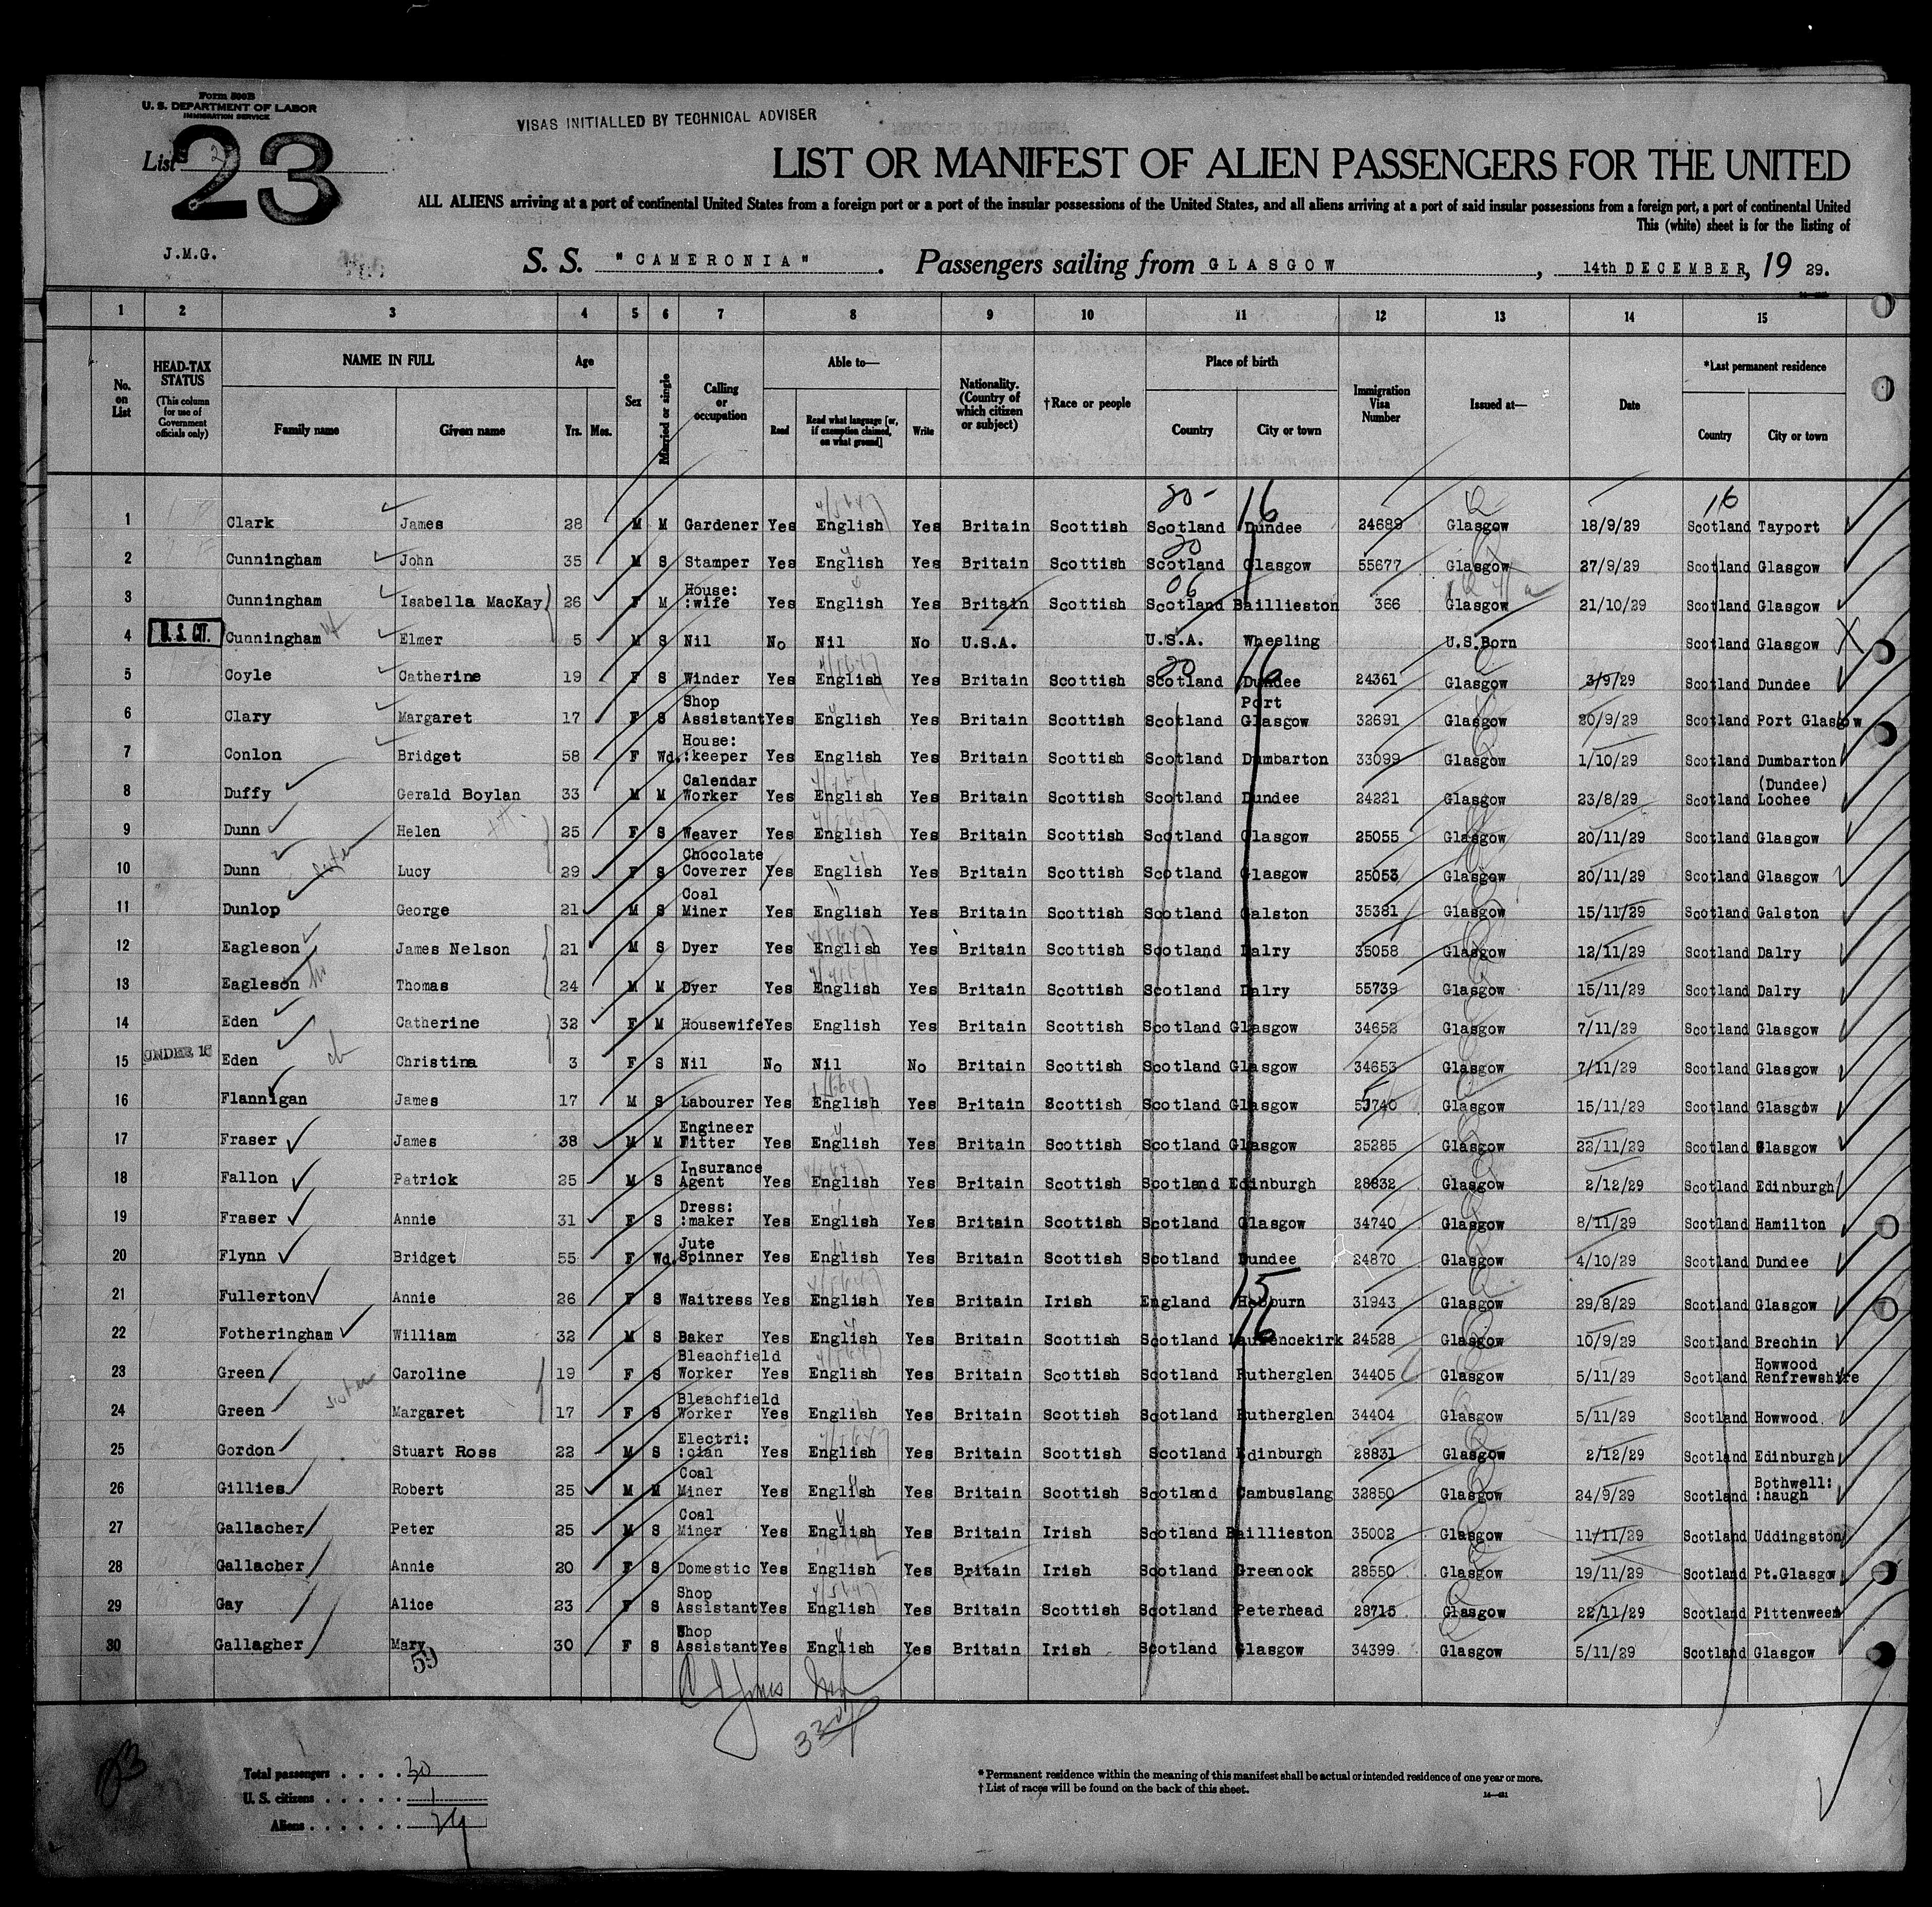 Form 500B
U. S. DEPARTMENT OF LABOR
IMMIGRATION SERVICE
VISAS INITIALLED BY TECHNICAL ADVISER
List 23
LIST OR MANIFEST OF ALIEN PASSENGERS FOR THE UNITED
ALL ALIENS arriving at a port of continental United States from a foreign port or a port of the insular possessions of the United States, and all aliens arriving at a port of said insular possessions from a foreign port, a port of continental United
This (white) sheet is for the listing of
J.M.G.
S. S. "CAMERONIA". Passengers sailing from GLASGOW, 14th DECEMBER, 19 29.
1 2 3 4 5 6 7 8 9 10 11 12 13 14 15
No. on List
HEAD-TAX STATUS
(This column for use of Government officials only)
NAME IN FULL
Family name Given name
Age
Yrs. Mos.
Sex
Married or single
Calling or occupation
Able to—
Read Read what language [or, if exemption claimed, on what ground] Write
Nationality. (Country of which citizen or subject)
†Race or people
Place of birth
Country City or town
Immigration Visa Number
Issued at—
Date
*Last permanent residence
Country City or town
20- 16 16
1 Clark James 28 M M Gardener Yes English Yes Britain Scottish Scotland Dundee 24689 Glasgow 18/9/29 Scotland Tayport
20
2 Cunningham John 35 M S Stamper Yes English Yes Britain Scottish Scotland Glasgow 55677 Glasgow 27/9/29 Scotland Glasgow
06
3 Cunningham Isabella MacKay 26 F M House: :wife Yes English Yes Britain Scottish Scotland Baillieston 366 Glasgow 21/10/29 Scotland Glasgow
4 U. S. CIT. Cunningham Elmer 5 M S Nil No Nil No U.S.A. U.S.A. Wheeling U.S.Born Scotland Glasgow
20 16
5 Coyle Catherine 19 F S Winder Yes English Yes Britain Scottish Scotland Dundee 24361 Glasgow 3/9/29 Scotland Dundee
6 Clary Margaret 17 F S Shop Assistant Yes English Yes Britain Scottish Scotland Port Glasgow 32691 Glasgow 20/9/29 Scotland Port Glasgow
7 Conlon Bridget 58 F Wd. House: :keeper Yes English Yes Britain Scottish Scotland Dumbarton 33099 Glasgow 1/10/29 Scotland Dumbarton
8 Duffy Gerald Boylan 33 M M Calendar Worker Yes English Yes Britain Scottish Scotland Dundee 24221 Glasgow 23/8/29 Scotland (Dundee) Lochee
9 Dunn Helen 25 F S Weaver Yes English Yes Britain Scottish Scotland Glasgow 25055 Glasgow 20/11/29 Scotland Glasgow
10 Dunn sister Lucy 29 F S Chocolate Coverer Yes English Yes Britain Scottish Scotland Glasgow 25053 Glasgow 20/11/29 Scotland Glasgow
11 Dunlop George 21 M S Coal Miner Yes English Yes Britain Scottish Scotland Galston 35381 Glasgow 15/11/29 Scotland Galston
12 Eagleson James Nelson 21 M S Dyer Yes English Yes Britain Scottish Scotland Dalry 35058 Glasgow 12/11/29 Scotland Dalry
13 Eagleson Thomas 24 M M Dyer Yes English Yes Britain Scottish Scotland Dalry 55739 Glasgow 15/11/29 Scotland Dalry
14 Eden Catherine 32 F M Housewife Yes English Yes Britain Scottish Scotland Glasgow 34652 Glasgow 7/11/29 Scotland Glasgow
15 UNDER 16 Eden Christina 3 F S Nil No Nil No Britain Scottish Scotland Glasgow 34653 Glasgow 7/11/29 Scotland Glasgow
16 Flannigan James 17 M S Labourer Yes English Yes Britain Scottish Scotland Glasgow Glasgow 15/11/29 Scotland Glasgow
17 Fraser James 38 M M Engineer Fitter Yes English Yes Britain Scottish Scotland Glasgow 25285 Glasgow 22/11/29 Scotland Glasgow
18 Fallon Patrick 25 M S Insurance Agent Yes English Yes Britain Scottish Scotland Edinburgh 28832 Glasgow 2/12/29 Scotland Edinburgh
19 Fraser Annie 31 F S Dress: :maker Yes English Yes Britain Scottish Scotland Glasgow 34740 Glasgow 8/11/29 Scotland Hamilton
20 Flynn Bridget 55 F Wd. Jute Spinner Yes English Yes Britain Scottish Scotland Dundee 24870 Glasgow 4/10/29 Scotland Dundee
15
21 Fullerton Annie 26 F S Waitress Yes English Yes Britain Irish England Hebburn 31943 Glasgow 29/8/29 Scotland Glasgow
16
22 Fotheringham William 32 M S Baker Yes English Yes Britain Scottish Scotland Laurencekirk 24528 Glasgow 10/9/29 Scotland Brechin
23 Green Caroline 19 F S Bleachfield Worker Yes English Yes Britain Scottish Scotland Rutherglen 34405 Glasgow 5/11/29 Scotland Howwood Renfrewshire
24 Green sister Margaret 17 F S Bleachfield Worker Yes English Yes Britain Scottish Scotland Rutherglen 34404 Glasgow 5/11/29 Scotland Howwood.
25 Gordon Stuart Ross 22 M S Electri: :cian Yes English Yes Britain Scottish Scotland Edinburgh 28831 Glasgow 2/12/29 Scotland Edinburgh
26 Gillies Robert 25 M M Coal Miner Yes English Yes Britain Scottish Scotland Cambuslang 32850 Glasgow 24/9/29 Scotland Bothwell: :haugh
27 Gallacher Peter 25 M S Coal Miner Yes English Yes Britain Irish Scotland Baillieston 35002 Glasgow 11/11/29 Scotland Uddingston
28 Gallacher Annie 20 F S Domestic Yes English Yes Britain Irish Scotland Greenock 28550 Glasgow 19/11/29 Scotland Pt.Glasgow
29 Gay Alice 23 F S Shop Assistant Yes English Yes Britain Scottish Scotland Peterhead 28715 Glasgow 22/11/29 Scotland Pittenweem
30 Gallagher Mary 30 F S Shop Assistant Yes English Yes Britain Irish Scotland Glasgow 34399 Glasgow 5/11/29 Scotland Glasgow
59
Total passengers . . . . 30
U. S. citizens . . . . . 1
Aliens . . . . . . 29
* Permanent residence within the meaning of this manifest shall be actual or intended residence of one year or more.
† List of races will be found on the back of this sheet.